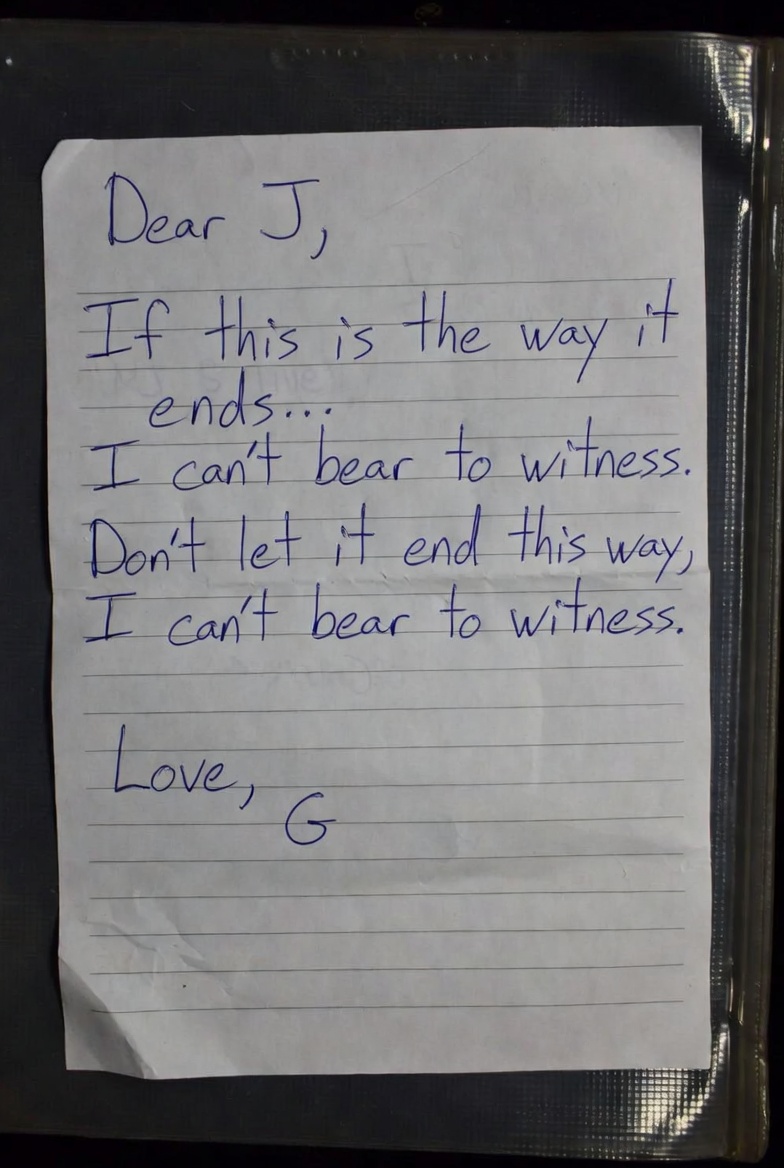 Dear J,
If this is the way it
ends...
I can't bear to witness.
Don't let it end this way,
I can't bear to witness.
Love,
G